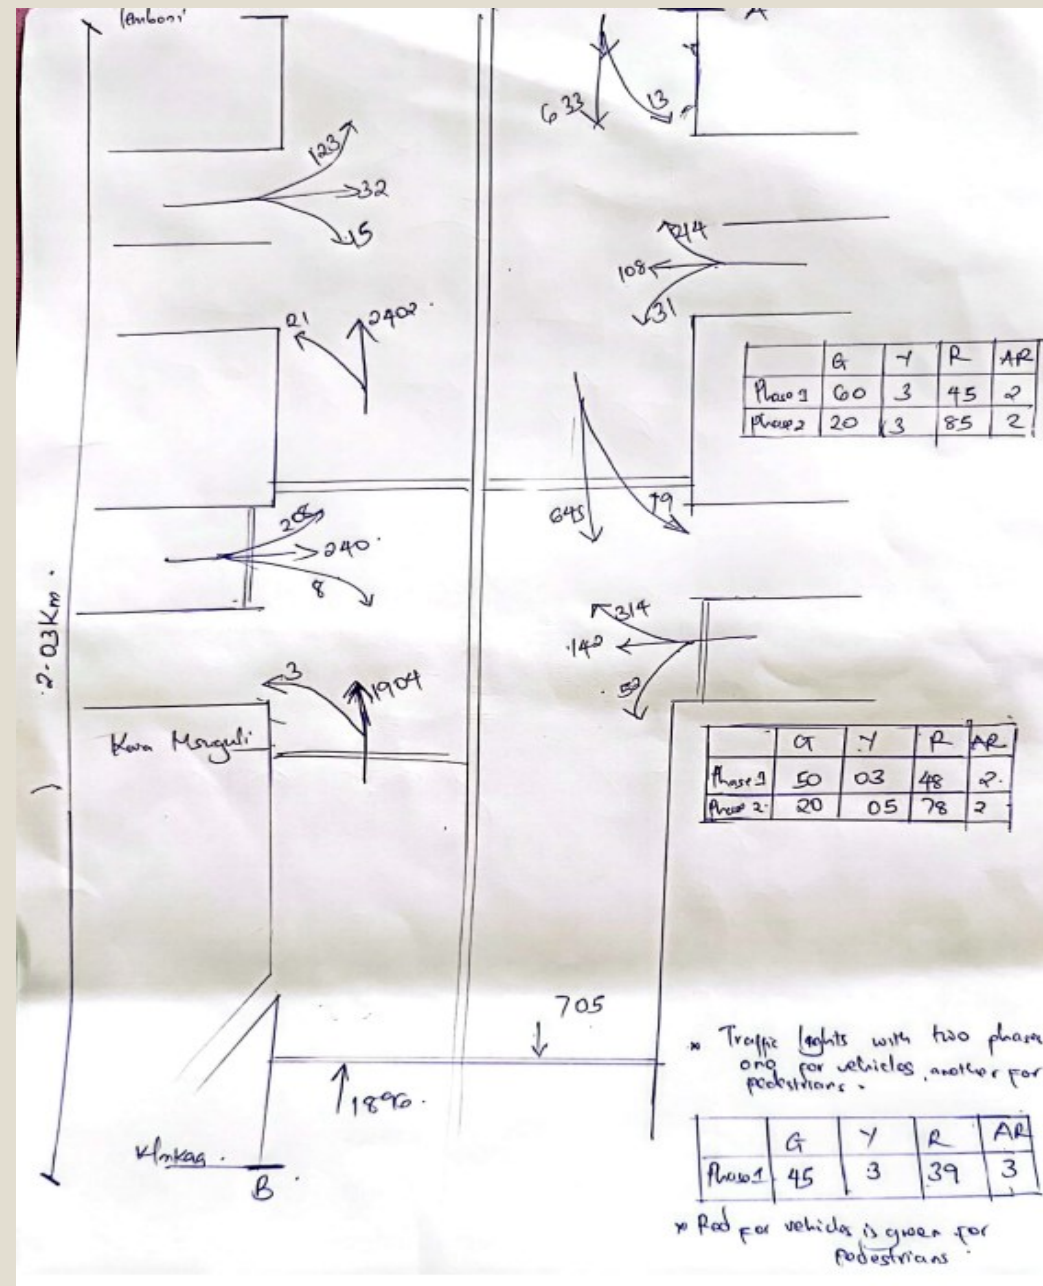 A
633 13
123
32
15
244
108
31
21 2402.
G Y R AR
Phase 1 60 3 45 2
Phase 2 20 3 85 2
208
240.
8
645 79
314
142
52
3 1904
2.03Km.
G Y R AR
Phase 1 50 03 48 2.
Phase 2. 20 05 78 2
705
1896.
* Traffic lights with two phases
one for vehicles, another for
pedestrians.
G Y R AR
Phase 1 45 3 39 3
B.
* Red for vehicles is green for
pedestrians.